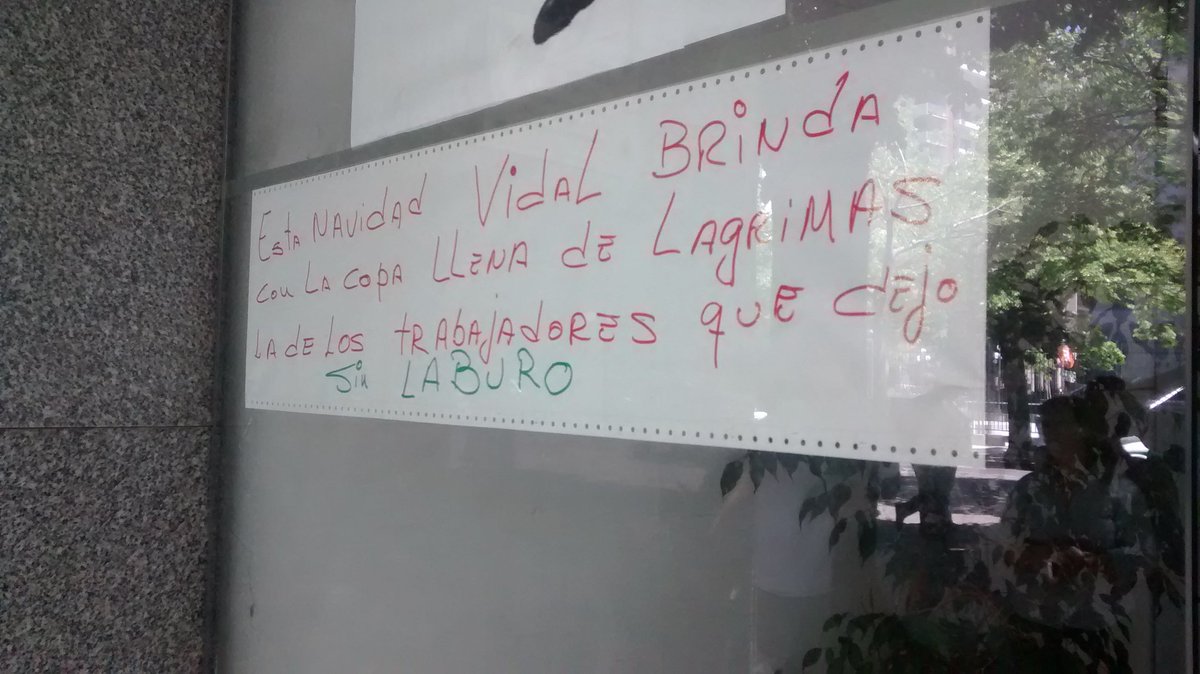 Esta NAVidad Vidal BRinda
con LA copa LLENA de LAgRiMAS
LA de LOS tRAbajadORES que dejo
Sin LABURO